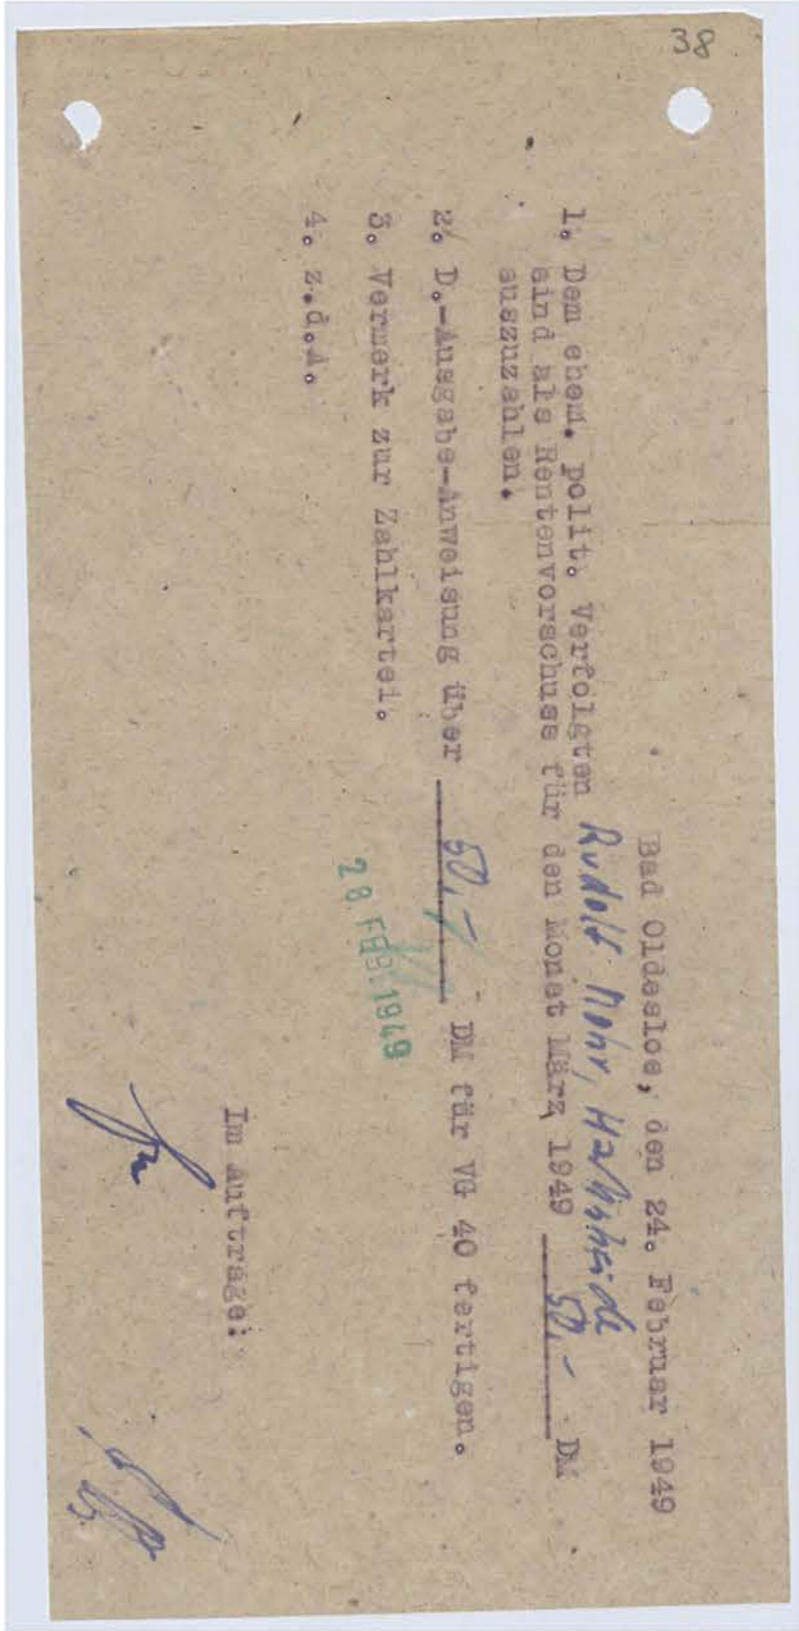 38
Bad Oldesloe, den 24. Februar 1949
1. Dem ehem. polit. Verfolgten Rudolf Mohr, Harksheide
sind als Rentenvorschuss für den Monat März 1949 50,- DM
auszuzahlen.
2. D.-Ausgabe-Anweisung über 50,- DM für VG 40 fertigen.
3. Vermerk zur Zahlkartei.
28. FEB. 1949
4. z.d.A.
Im Auftrage: